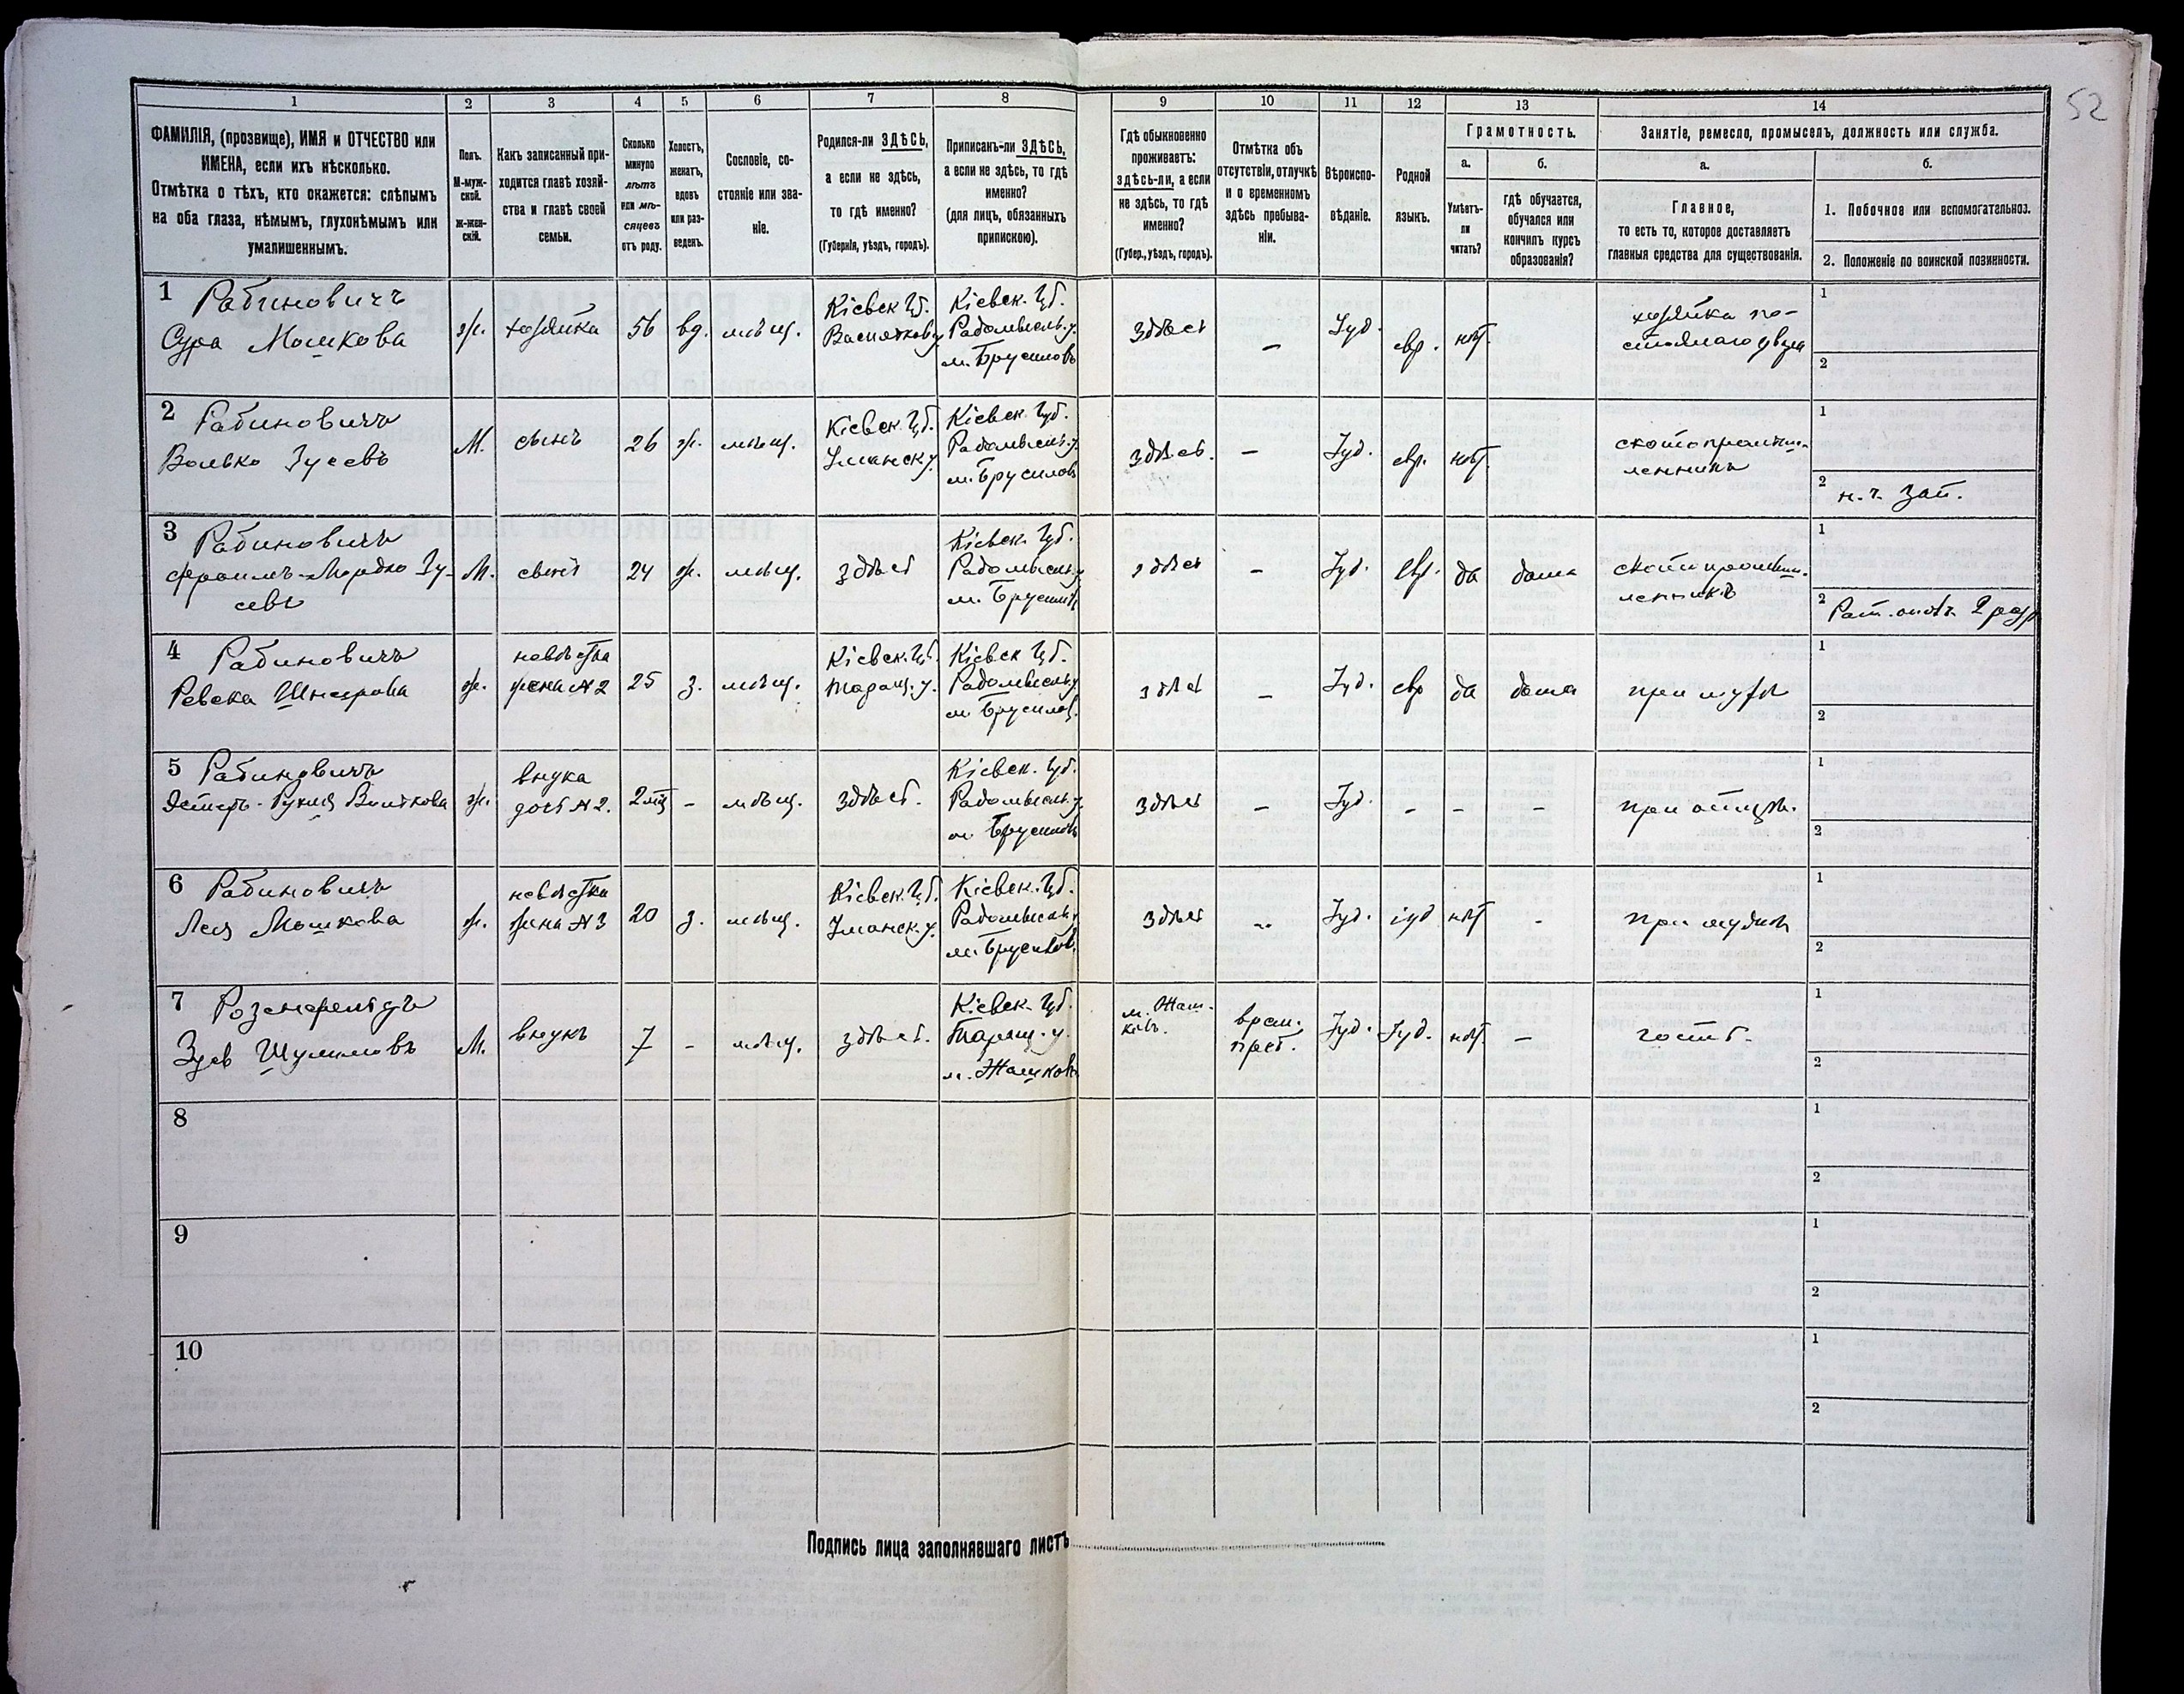 52
1
2
3
4
5
6
7
8
9
10
11
12
13
14
ФАМИЛІЯ, (прозвище), ИМЯ и ОТЧЕСТВО или
ИМЕНА, если ихъ нѣсколько.
Отмѣтка о тѣхъ, кто окажется: слѣпымъ
на оба глаза, нѣмымъ, глухонѣмымъ или
умалишеннымъ.
Полъ.
М-муж-
ской.
Ж-жен-
скій.
Какъ записанный при-
ходится главѣ хозяй-
ства и главѣ своей
семьи.
Сколько
минуло
лѣтъ
или мѣ-
сяцевъ
отъ роду.
Холостъ,
женатъ,
вдовъ
или раз-
веденъ.
Сословіе, со-
стояніе или зва-
ніе.
Родился-ли ЗДѢСЬ,
а если не здѣсь,
то гдѣ именно?
(Губернія, уѣздъ, городъ).
Приписанъ-ли ЗДѢСЬ,
а если не здѣсь, то гдѣ
именно?
(для лицъ, обязанныхъ
припискою).
Гдѣ обыкновенно
проживаетъ:
здѣсь-ли, а если
не здѣсь, то гдѣ
именно?
(Губер., уѣздъ, городъ).
Отмѣтка объ
отсутствіи, отлучкѣ
и о временномъ
здѣсь пребыва-
ніи.
Вѣроиспо-
вѣданіе.
Родной
языкъ.
Грамотность.
а.
Умѣетъ-
ли
читать?
б.
гдѣ обучается,
обучался или
кончилъ курсъ
образованія?
Занятіе, ремесло, промыселъ, должность или служба.
а.
Главное,
то есть то, которое доставляетъ
главныя средства для существованія.
б.
1. Побочное или вспомогательное.
2. Положеніе по воинской повинности.
1 Рабиновичъ
Сура Мошкова
ж.
хозяйка
56
вд.
мѣщ.
Кіевск. Губ.
Васильков. у.
Кіевск. Губ.
Радомысльск. у.
м. Брусиловъ
здѣсь
-
Іуд.
евр.
нѣт.
хозяйка по-
стоялаго двора
1
2
2 Рабиновичъ
Волько Зусевъ
М.
сынъ
26
ж.
мѣщ.
Кіевск. Губ.
Уманск у.
Кіевск. Губ.
Радомысльск. у.
м. Брусилов
здѣсь.
-
Іуд.
евр.
нѣт.
скотопромыш-
ленникъ
1
2 н. ч. зап.
3 Рабиновичъ
Фроимъ-Мордко Зу-
севъ
М.
сынъ
24
ж.
мѣщ.
здѣсь
Кіевск. Губ.
Радомысльск. у.
м. Брусиловъ
здѣсь
-
Іуд.
Евр.
да
дома
скотопромыш-
ленникъ
1
2 Рат. опол. 2 разр
4 Рабиновичъ
Ревека Шнеерова
ж.
невѣстка
жена №2
25
з.
мѣщ.
Кіевск. Губ.
Таращ. у.
Кіевск Губ.
Радомысльск. у.
м. Брусилов.
здѣсь
-
Іуд.
евр
да
дома
при мужѣ
1
2
5 Рабиновичъ
Эстеръ-Рухля Волькова
ж.
внука
дочь №2.
2 мѣ
-
мѣщ.
здѣсь.
Кіевск. Губ.
Радомысльск. у.
м Брусиловъ
здѣсь
-
Іуд.
-
-
-
при отцѣ.
1
2
6 Рабиновичъ
Лея Мошкова
ж.
невѣстка
жена №3
20
з.
мѣщ.
Кіевск. Губ.
Уманск. у.
Кіевск. Губ.
Радомысльск. у.
м. Брусилов.
здѣсь
-
Іуд.
іуд
нѣт
-
при мужѣ
1
2
7 Розенфельдъ
Зусь Шулимовъ
М.
внукъ
7
-
мѣщ.
здѣсь.
Кіевск. Губ.
Таращ. у.
м. Жашковъ
м. Жаш-
ковъ.
врем.
преб.
Іуд.
Іуд.
нѣт
-
гость.
1
2
8
1
2
9
1
2
10
1
2
Подпись лица заполнявшаго листъ